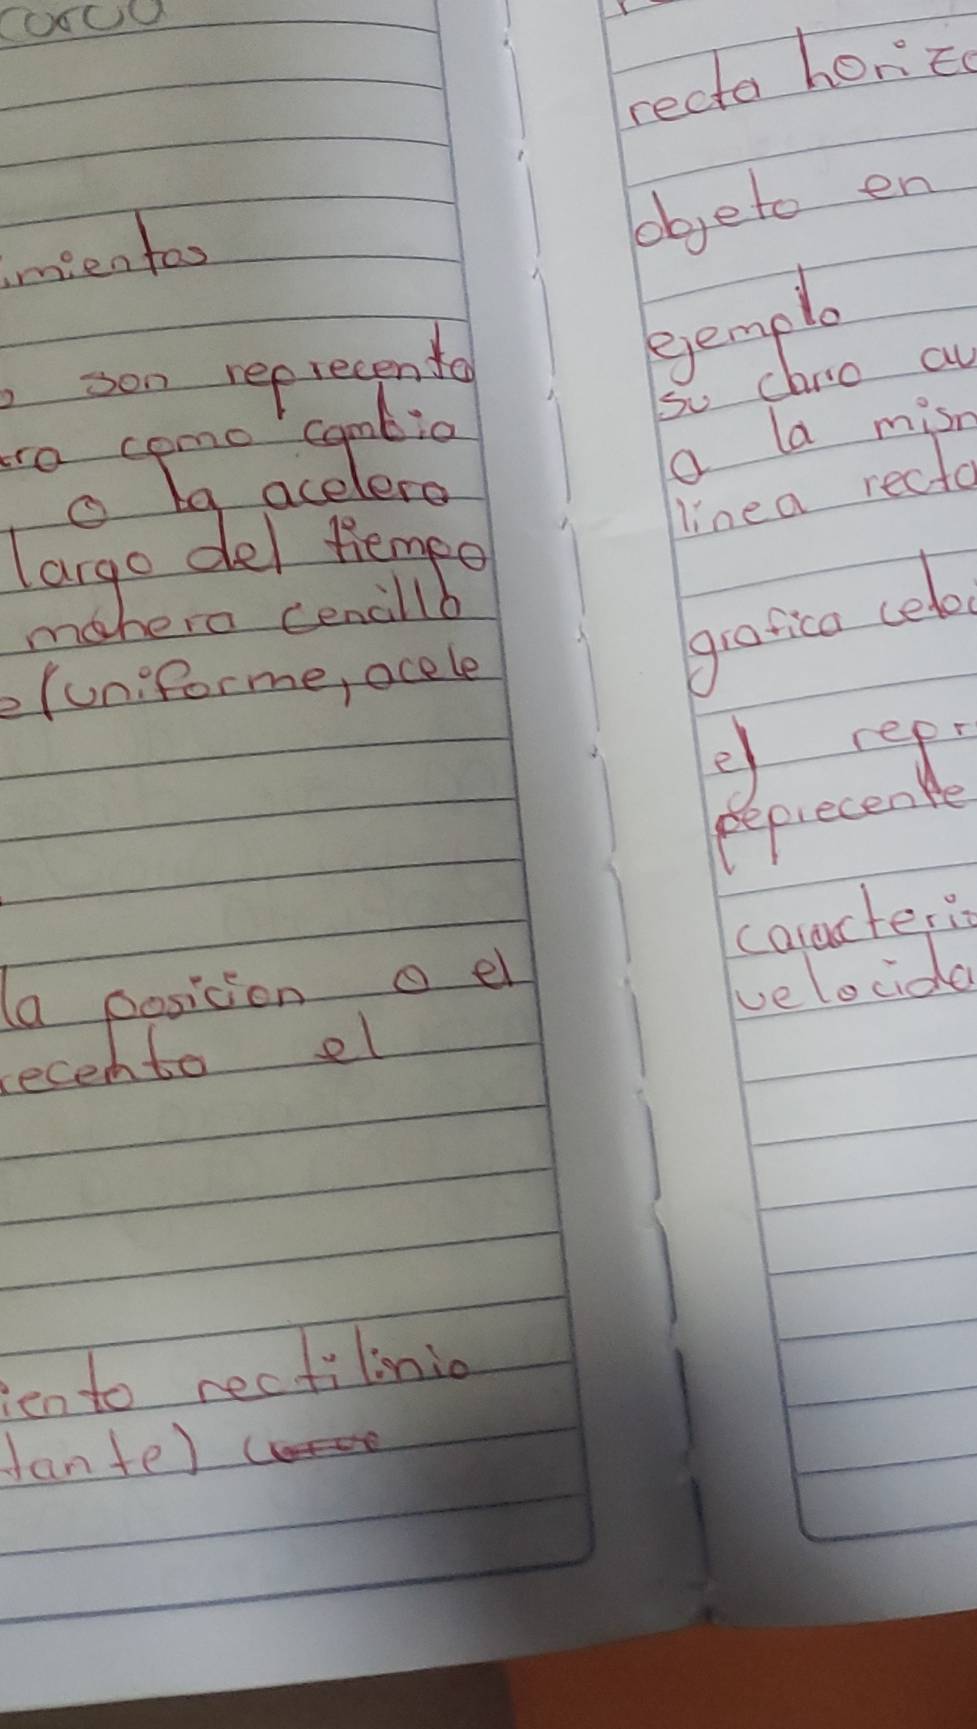 imientos
son reprecenta
ra como cambia
o la acelera
largo del tiempo
mahera cencilla
e (uniforme, acele
la posicion o el
recento el
iento rectilinio
tante)
recta horizo
objeto en
ejemplo
su carro au
a la mism
linea recta
grafica veloc
el repr
peprecente
caracteris
velocida